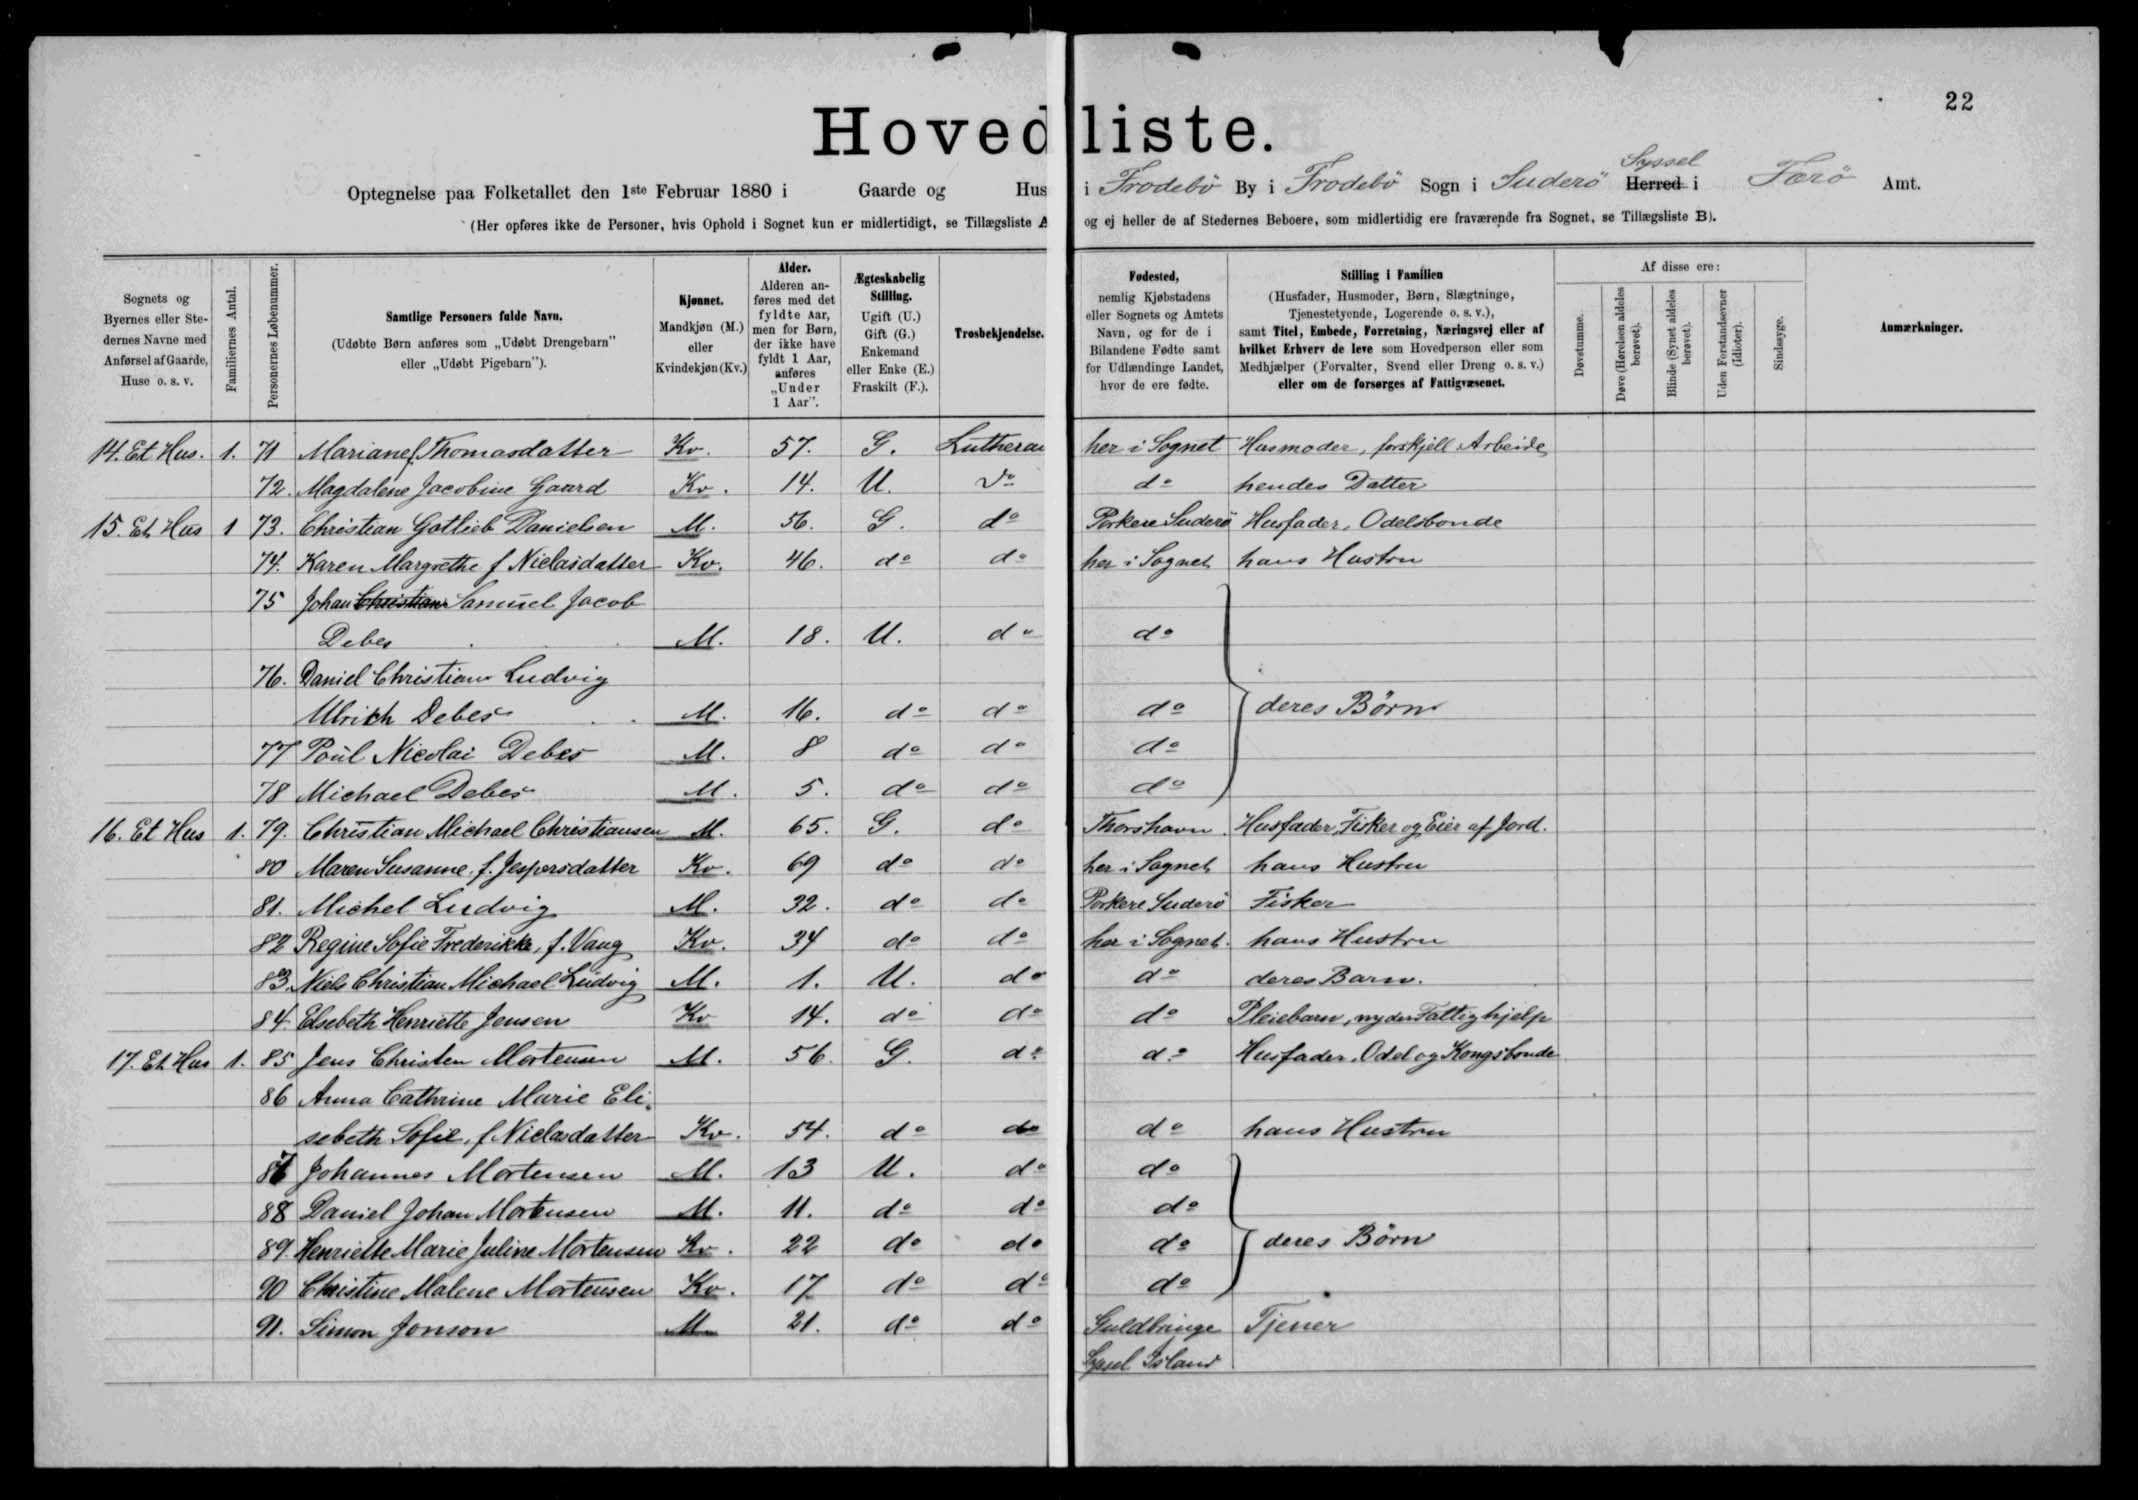 22
Hovedliste.
Syssel
Optegnelse paa Folketallet den 1ste Februar 1880 i Gaarde og Hus i Frodebö By i Frodebö Sogn i Suderö Herred i Færö Amt.
(Her opføres ikke de Personer, hvis Ophold i Sognet kun er midlertidigt, se Tillægsliste A og ej heller de af Stedernes Beboere, som midlertidig ere fraværende fra Sognet, se Tillægsliste B).
Sognets og Byernes eller Stedernes Navne med Anførsel af Gaarde, Huse o. s. v.
Familiernes Antal.
Personernes Løbenummer.
Samtlige Personers fulde Navn.
(Udøbte Børn anføres som „Udøbt Drengebarn" eller „Udøbt Pigebarn").
Kjønnet.
Mandkjøn (M.) eller Kvindekjøn (Kv.)
Alder.
Alderen anføres med det fyldte Aar, men for Børn, der ikke have fyldt 1 Aar, anføres „Under 1 Aar".
Ægteskabelig Stilling.
Ugift (U.) Gift (G.) Enkemand eller Enke (E.) Fraskilt (F.).
Trosbekjendelse.
Fødested,
nemlig Kjøbstadens eller Sognets og Amtets Navn, og for de i Bilandene Fødte samt for Udlændinge Landet, hvor de ere fødte.
Stilling i Familien
(Husfader, Husmoder, Børn, Slægtninge, Tjenestetyende, Logerende o. s. v.), samt Titel, Embede, Forretning, Næringsvej eller af hvilket Erhverv de leve som Hovedperson eller som Medhjælper (Forvalter, Svend eller Dreng o. s. v.) eller om de forsørges af Fattigvæsenet.
Af disse ere:
Døvstumme.
Døve (Hørelsen aldeles berøvet).
Blinde (Synet aldeles berøvet).
Uden Forstandsevner (Idioter).
Sindssyge.
Anmærkninger.
14. Et Hus. 1. 71 Mariane f. Thomasdatter Kv. 57. G. Lutheran her i Sognet Husmoder, forskjell Arbeide
72. Magdalene Jacobine Gaard Kv. 14. U. do do hendes Datter
15. Et Hus 1 73. Christian Gotlieb Danielsen M. 56. G. do Porkere Suderö Husfader, Odelsbonde
74. Karen Margrethe f Niclasdatter Kv. 46. do do her i Sognet hans Hustru
75 Johan Christian Samuel Jacob
Debes M. 18. U. do do
76. Daniel Christian Ludvig
Ulrich Debes M. 16. do do do deres Børn
77 Poul Nicolai Debes M. 8 do do do
78 Michael Debes M. 5. do do do
16. Et Hus 1. 79. Christian Michael Christiansen M. 65. G. do Thorshavn. Husfader, Fisker og Eier af Jord.
80 Maren Susanne f. Jespersdatter Kv. 69 do do her i Sognet hans Hustru
81. Michel Ludvig M. 32. do do Porkere Suderö Fisker
82 Regine Sofie Frederikke, f. Vang Kv. 34 do do her i Sognet. hans Hustru
83. Niels Christian Michael Ludvig M. 1. U. do do deres Barn.
84 Elsebeth Henriette Jensen Kv 14. do do do Pleiebarn, nyder Fattighjelp
17. Et Hus 1. 85 Jens Christen Mortensen M. 56. G. do do Husfader, Odel og Kongsbonde
86 Anna Cathrine Marie Eli-
sebeth Sofie, f Niclasdatter Kv. 54. do do do hans Hustru
87 Johannes Mortensen M. 13 U. do do
88 Daniel Johan Mortensen M. 11. do do do
89. Henriette Marie Juline Mortensen Kv. 22 do do do deres Børn
90 Christine Malene Mortensen Kv. 17 do do do
91. Simon Jonson M 21. do do Guldbringe Tjener
Syssel Island